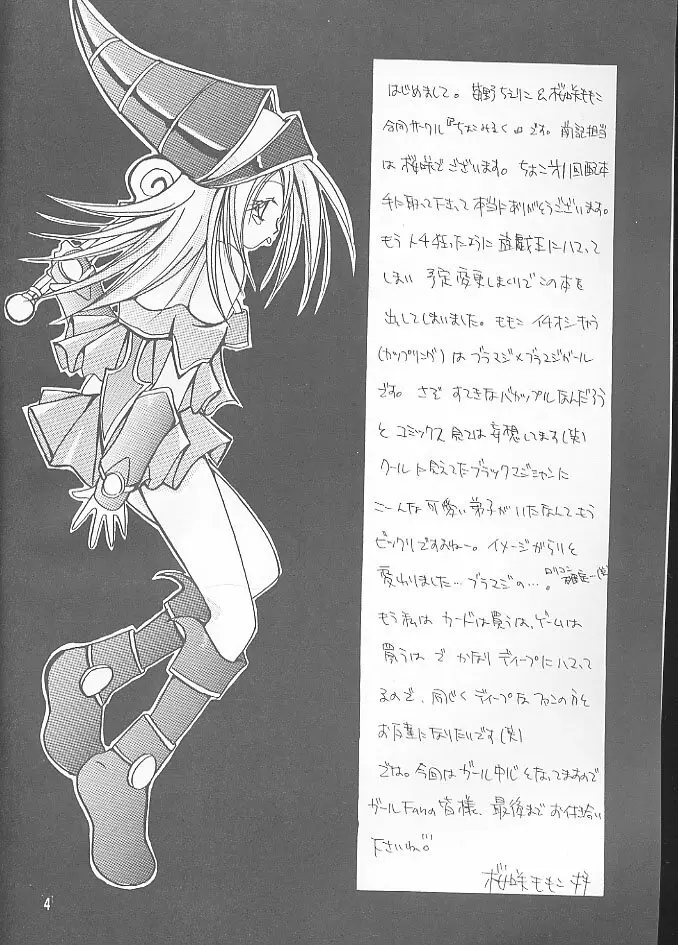 はじめまして。 野ちえりこ&桜咲ももこ
合同サークル『ちょこみるく』です。前記担当
は桜咲でございます。ちょこオリ回配本
手に取って下さって本当にありがとうございます。
もう人4狂ったように遊戯王にハマって
しまい 予定変更しまくりでこの本を
出してしまいました。ももこ イチオシキャラ
(カップリング)はブラマジ×ブラマジガール
です。さぞ すてきなバカップルなんだろう
と コミックス 見ては妄想してます(笑)
クールに見えてたブラックマジシャンに
こーんな可愛い弟子がいたなんてもう
ビックリですよねー。イメージがらりと
変わりました…ブラマジの…。ロリコン確定…(笑)
もう私は カードは買うは、ゲームは
買うは で かなり ディープにハマって
るので、同じく ディープな ファンの方と
お友達になりたいです(笑)
では。今回はガール中心となってますので
ガールFanの皆様、最後までお付き合い
下さいね。
桜咲ももこ 拝
4